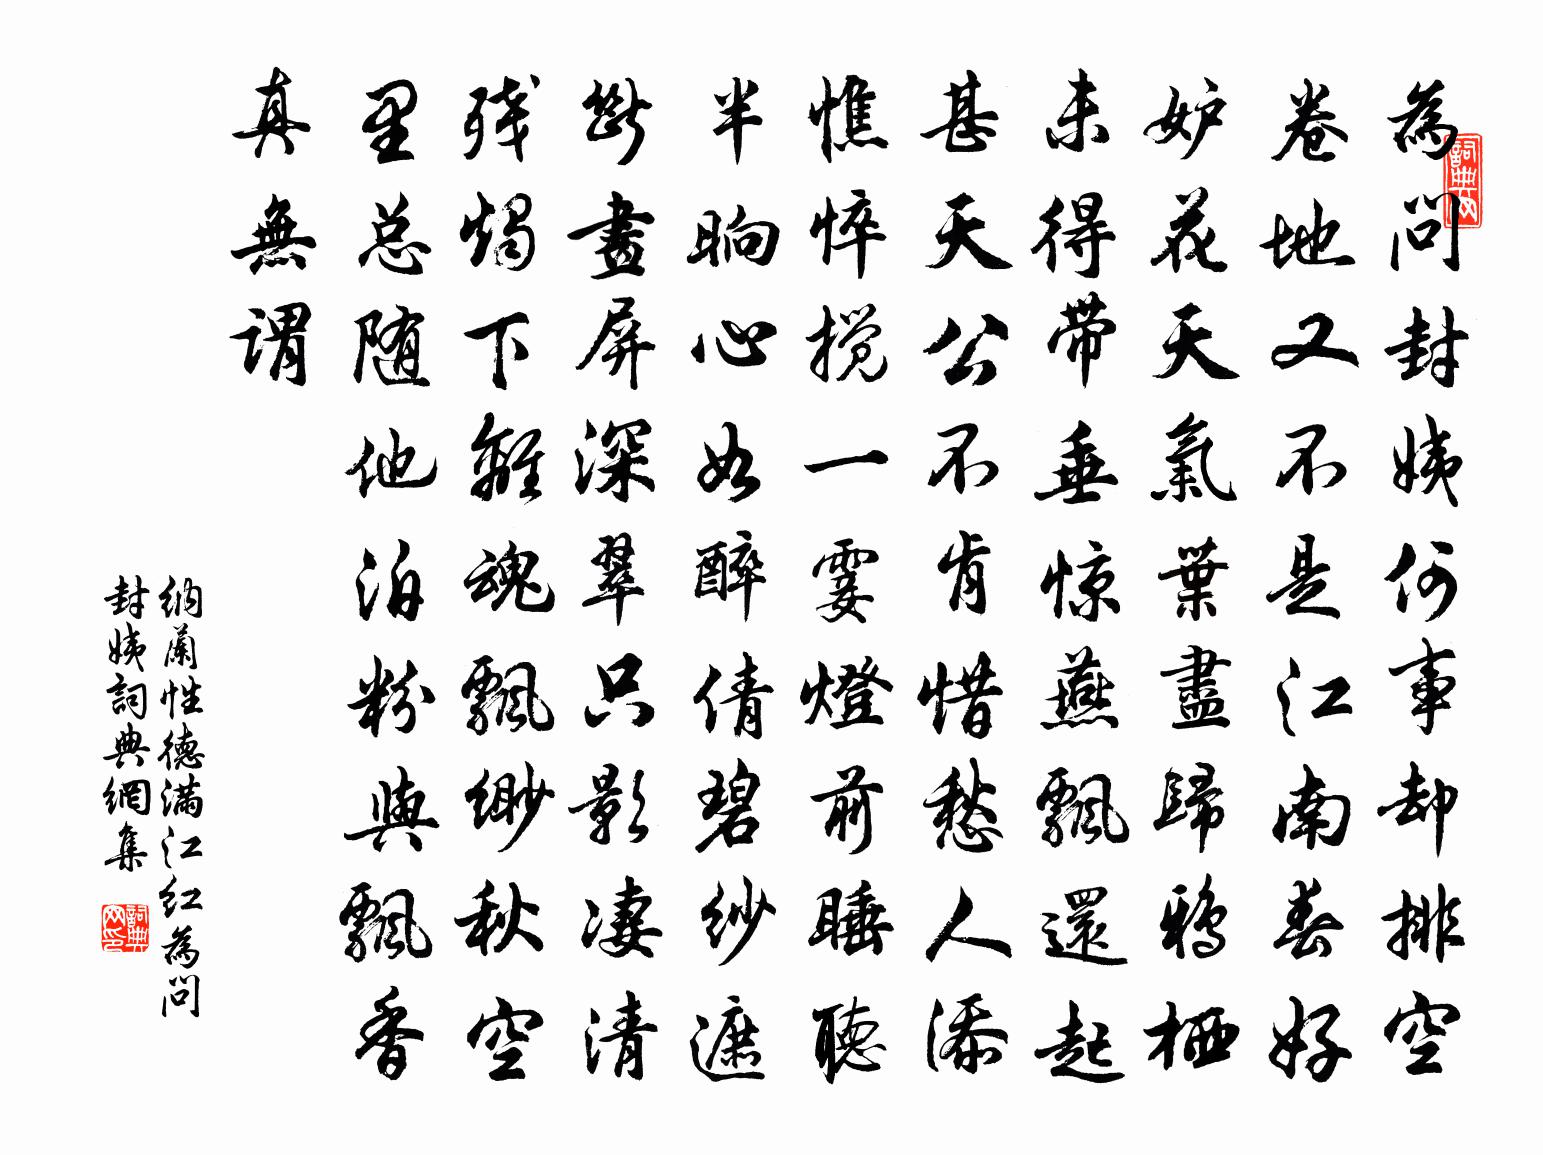 為問封姨何事却排空
卷地又不是江南春好
妒花天氣葉盡歸鴉栖
未得带垂惊燕飄還起
甚天公不肯惜愁人添
憔悴搅一霎燈前睡聽
半晌心如醉倩碧紗遮
斷畫屏深翠只影凄清
残燭下離魂飄缈秋空
里总随他泊粉與飄香
真無謂
納蘭性德满江红為問
封姨詞典網集
詞典网
詞典网印